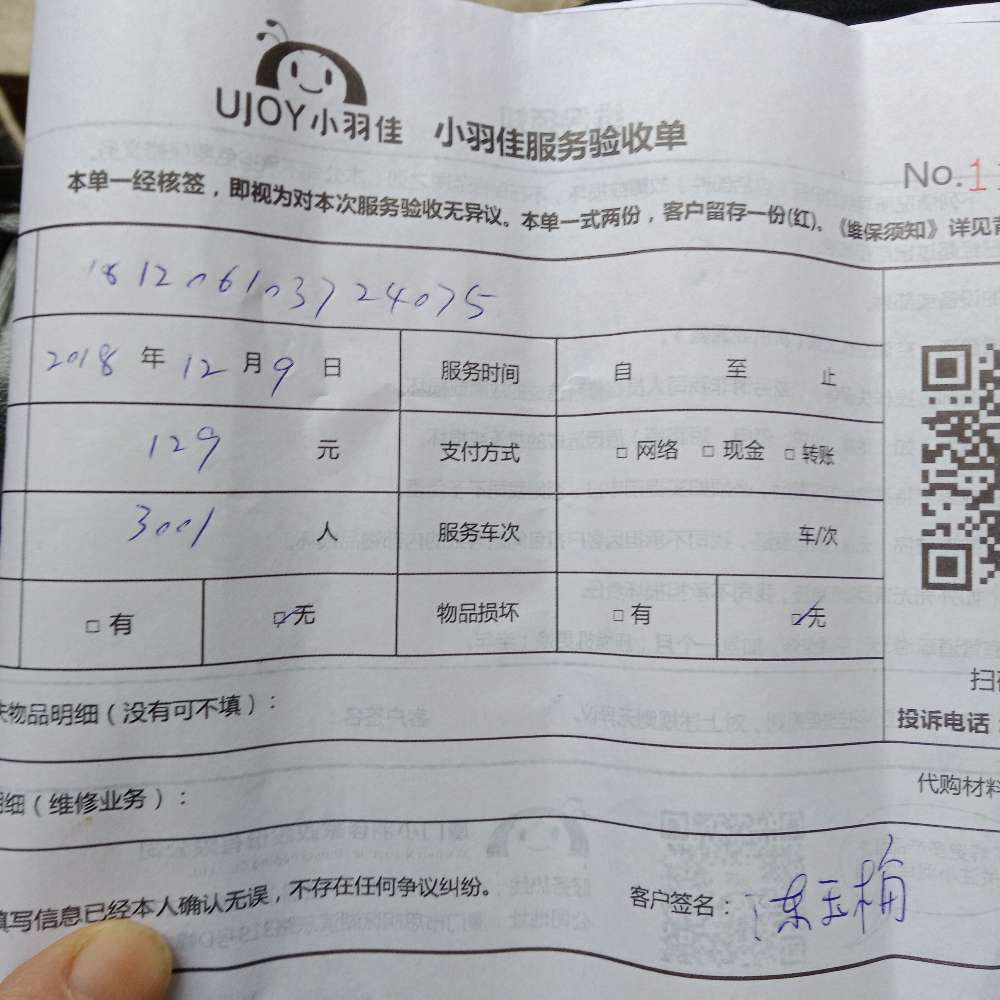 UJOY小羽佳 小羽佳服务验收单
No.1
本单一经核签，即视为对本次服务验收无异议。本单一式两份，客户留存一份(红)。《维保须知》详见背
181206103724075
2018 年 12 月 9 日 服务时间 自 至 止
129 元 支付方式 □ 网络 □ 现金 □ 转账
3001 人 服务车次 车/次
□ 有 ☑无 物品损坏 □ 有 ☑无
扫
物品明细（没有可不填）：
投诉电话
细（维修业务）：
代购材料
填写信息已经本人确认无误，不存在任何争议纠纷。
客户签名：陈玉梅